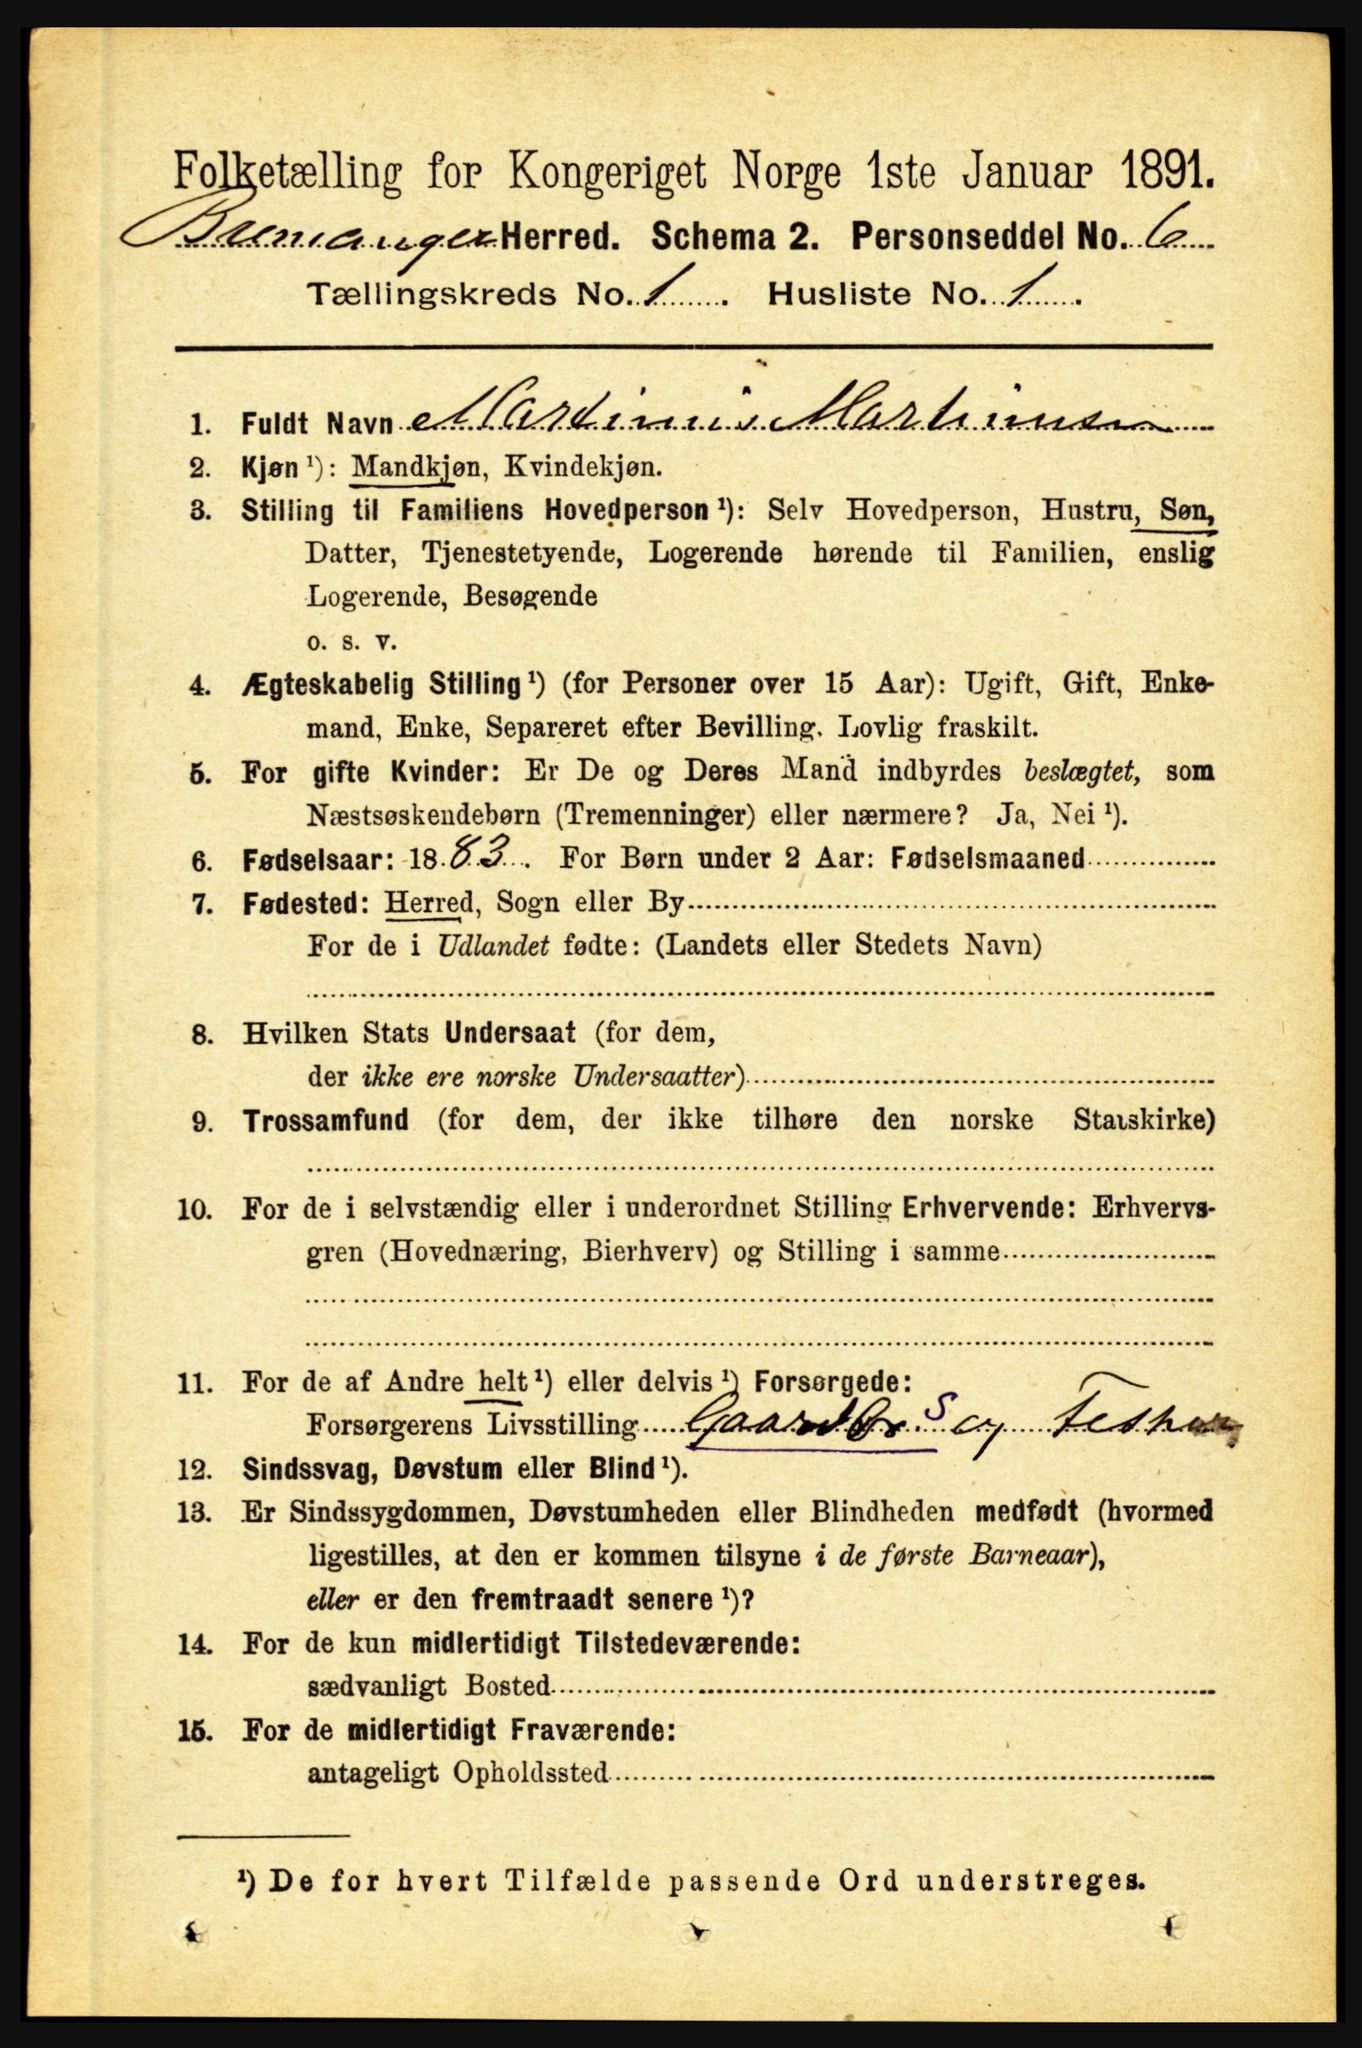 Folketælling for Kongeriget Norge 1ste Januar 1891.
Bremanger Herred. Schema 2. Personseddel No. 6
Tællingskreds No. 1. Husliste No. 1.
1. Fuldt Navn Martinus Martinusen
2. Kjøn¹): Mandkjøn, Kvindekjøn.
3. Stilling til Familiens Hovedperson¹): Selv Hovedperson, Hustru, Søn,
Datter, Tjenestetyende, Logerende hørende til Familien, enslig
Logerende, Besøgende
o. s. v.
4. Ægteskabelig Stilling¹) (for Personer over 15 Aar): Ugift, Gift, Enke-
mand, Enke, Separeret efter Bevilling. Lovlig fraskilt.
5. For gifte Kvinder: Er De og Deres Mand indbyrdes beslægtet, som
Næstsøskendebørn (Tremenninger) eller nærmere? Ja, Nei¹).
6. Fødselsaar: 1883. For Børn under 2 Aar: Fødselsmaaned
7. Fødested: Herred, Sogn eller By
For de i Udlandet fødte: (Landets eller Stedets Navn)
8. Hvilken Stats Undersaat (for dem,
der ikke ere norske Undersaatter)
9. Trossamfund (for dem, der ikke tilhøre den norske Statskirke)
10. For de i selvstændig eller i underordnet Stilling Erhvervende: Erhvervs-
gren (Hovednæring, Bierhverv) og Stilling i samme
11. For de af Andre helt¹) eller delvis¹) Forsørgede:
Forsørgerens Livsstilling Gaardbr. S og
12. Sindssvag, Døvstum eller Blind¹).
13. Er Sindssygdommen, Døvstumheden eller Blindheden medfødt (hvormed
ligestilles, at den er kommen tilsyne i de første Barneaar),
eller er den fremtraadt senere¹)?
14. For de kun midlertidigt Tilstedeværende:
sædvanligt Bosted
15. For de midlertidigt Fraværende:
antageligt Opholdssted
¹) De for hvert Tilfælde passende Ord understreges.